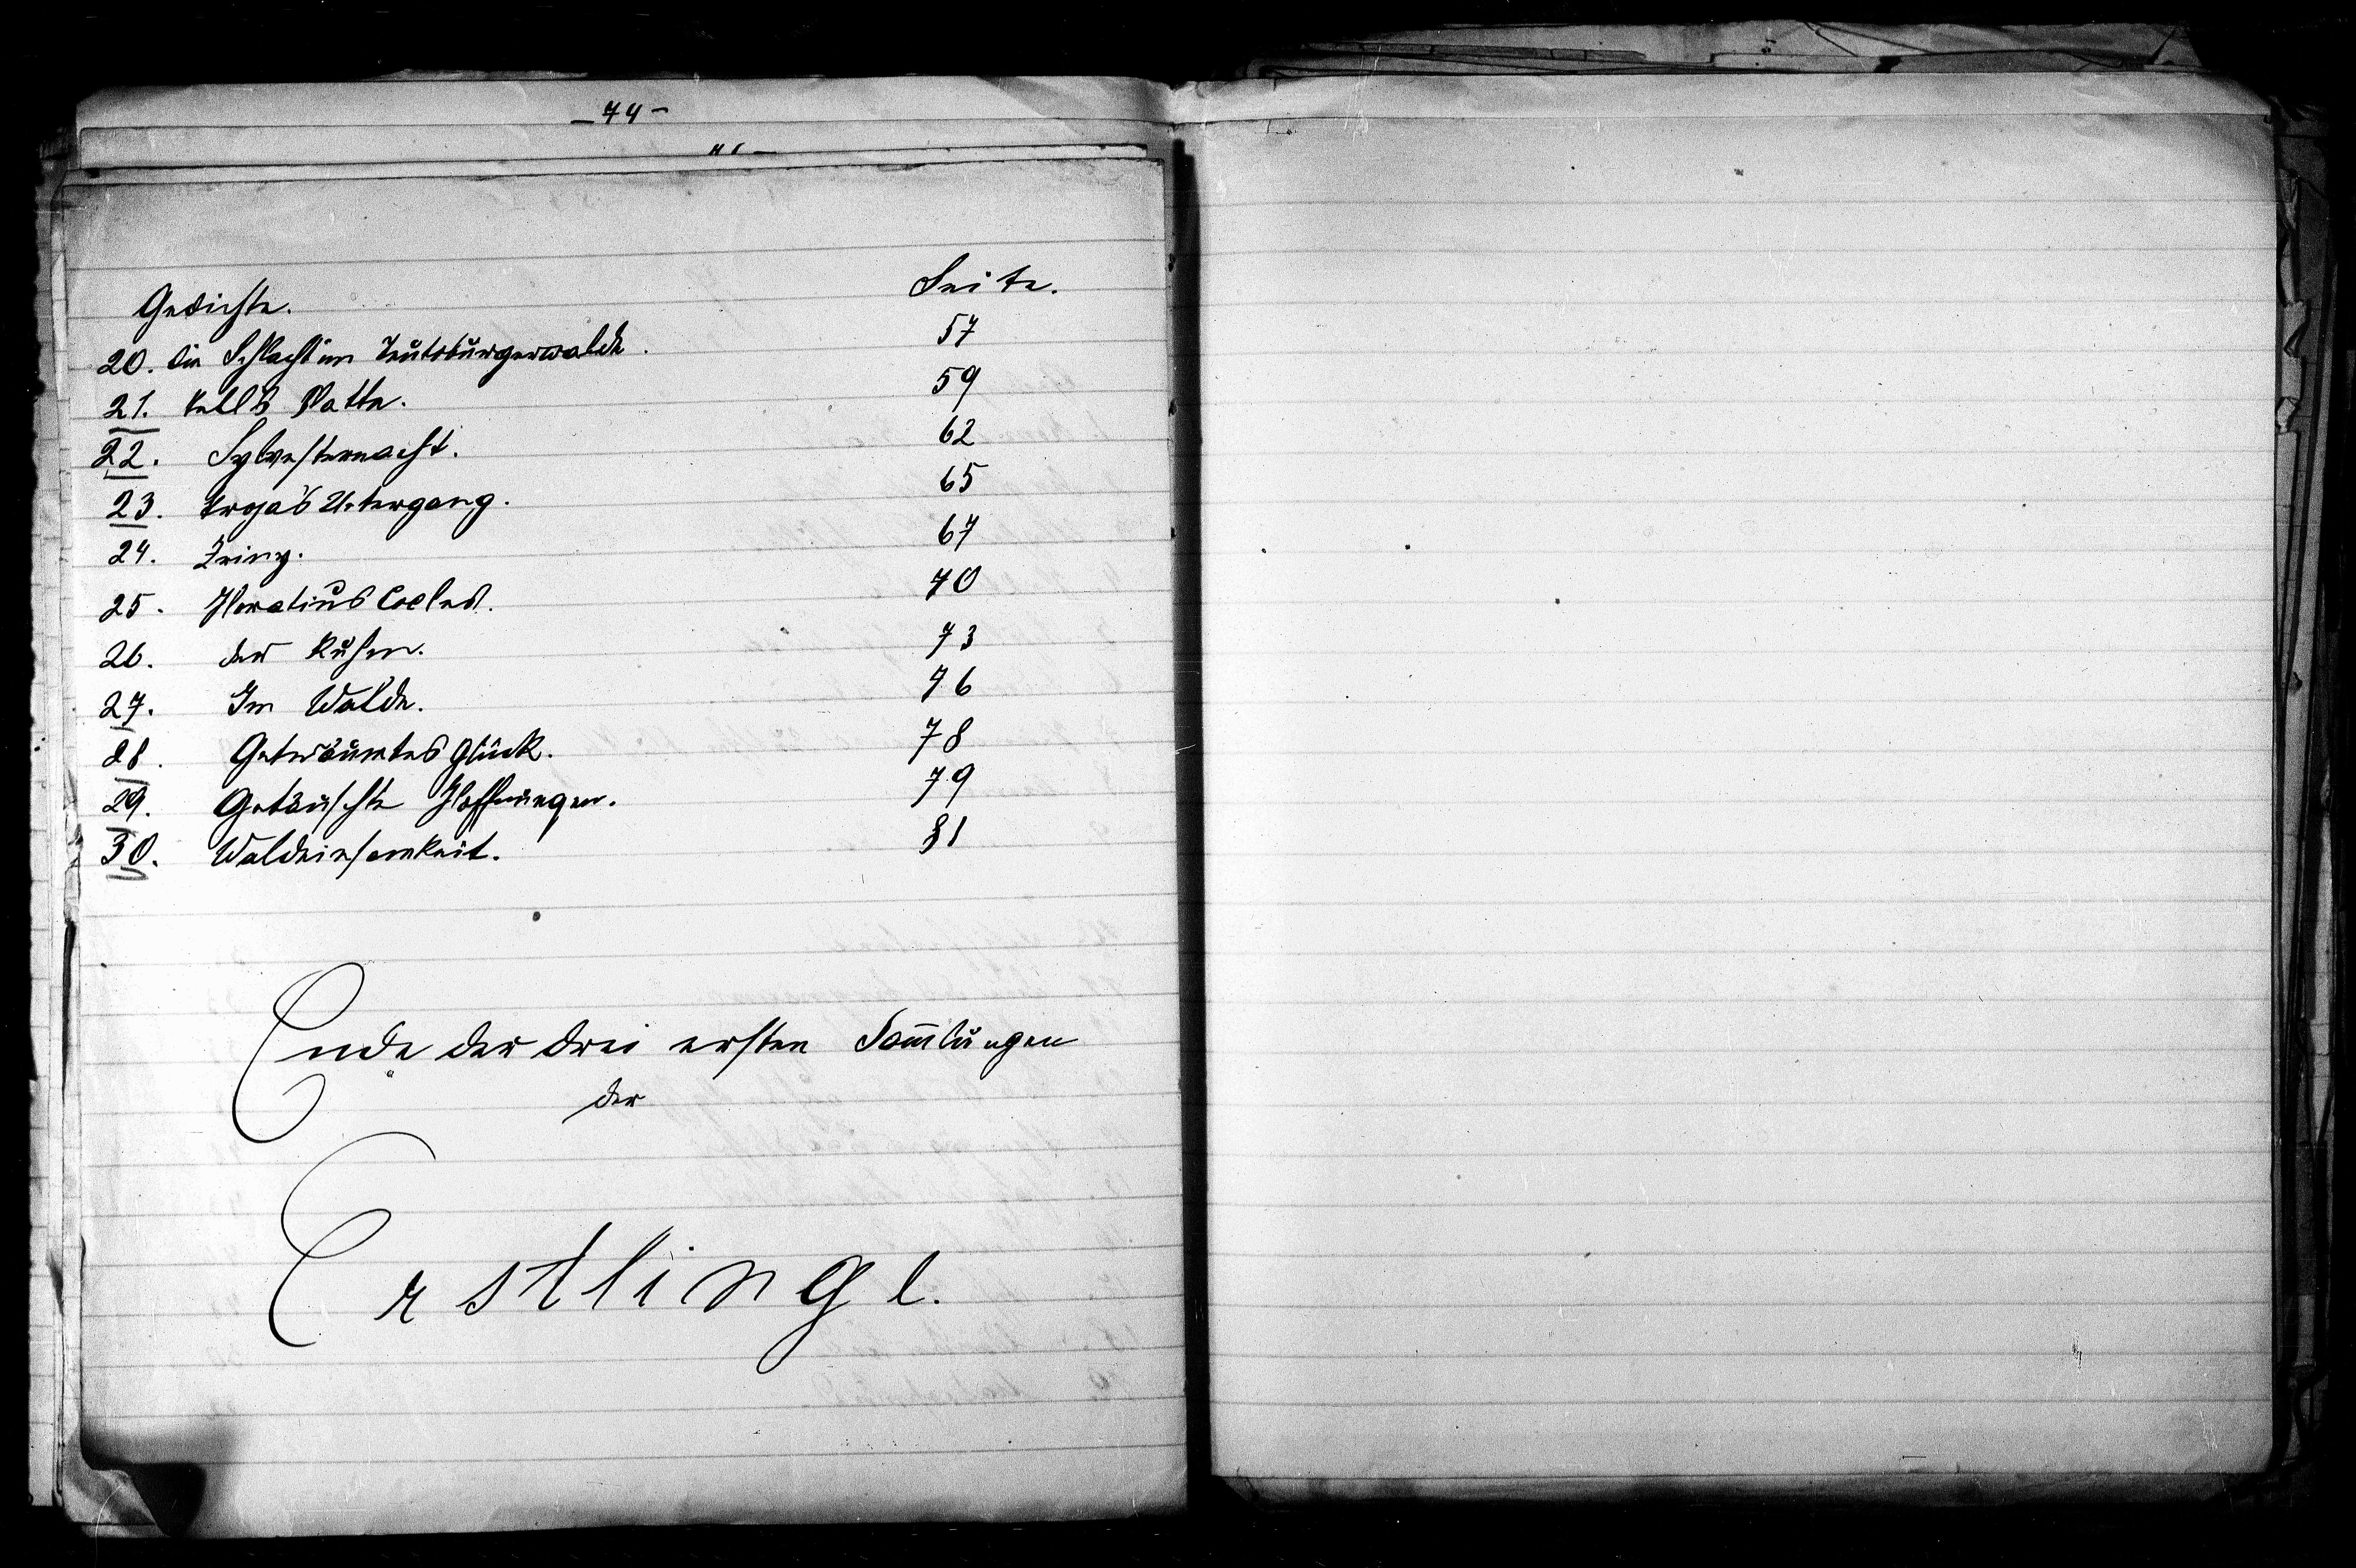 – 74 –
Gedichte. Seite.
20. Die Schlacht im Teutoburgerwalde. 57
21. Tell's Platte. 59
22. Sylvesternacht. 62
23. Troja's Untergang. 65
24. Zriny. 67
25. Horatius Cocles. 70
26. Der 73
27. Im Walde. 76
28. Geträumtes Glück. 78
29. Getäuschte Hoffnungen. 79
30. Waldeinsamkeit. 81
Ende der drei ersten Sam̅lungen
der
Erstlinge.